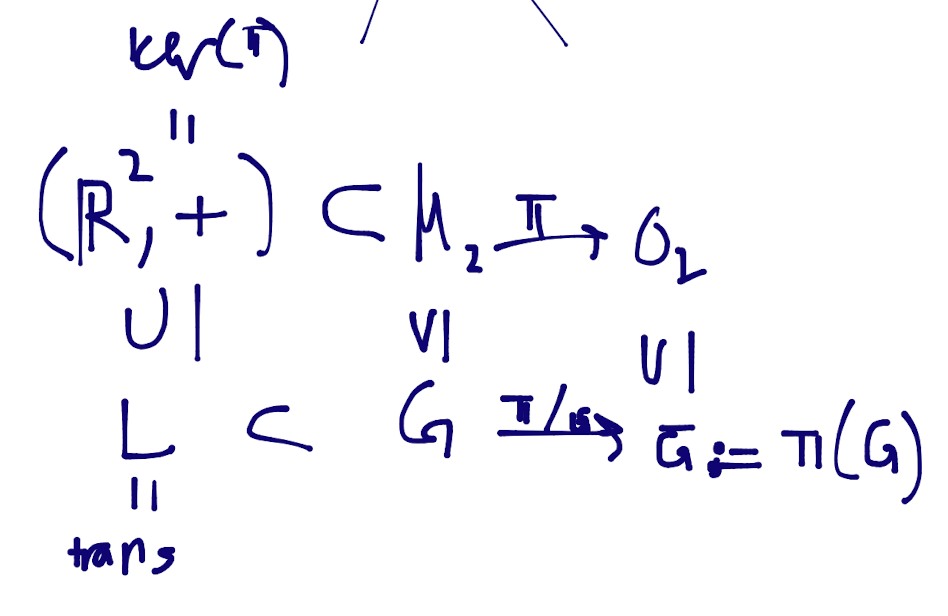 ker(π)
=
(ℝ², +) ⊂ M₂ →π O₂
∪| ∨| ∪|
L ⊂ G →π/G Ḡ := π(G)
=
trans